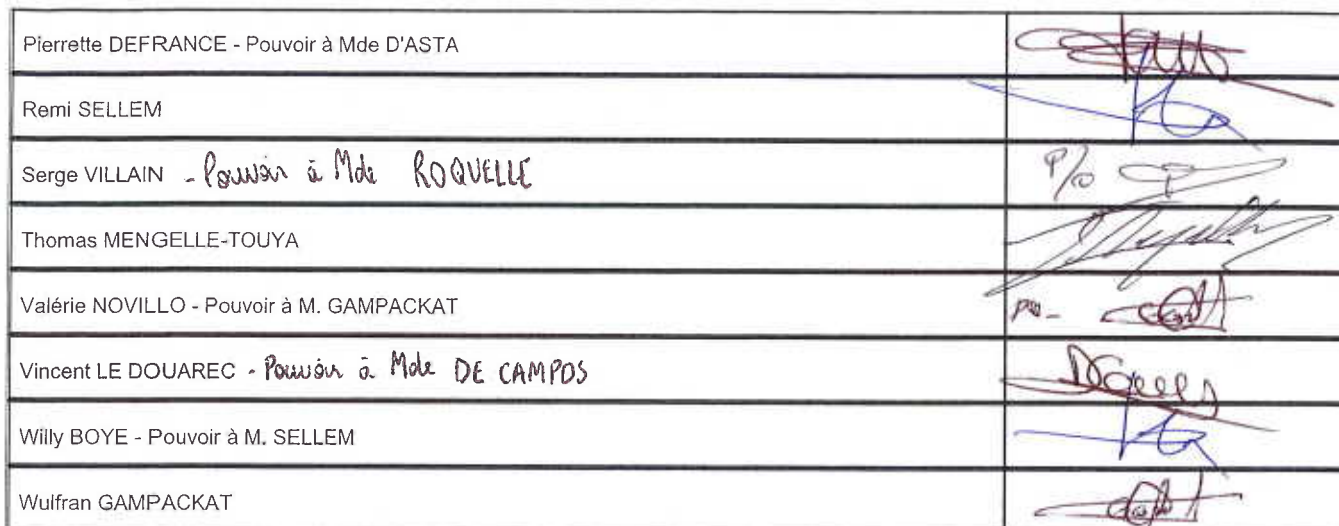 Pierrette DEFRANCE - Pouvoir à Mde D'ASTA
Remi SELLEM
Serge VILLAIN - Pouvoir à Mde ROQUELLE
P/o
Thomas MENGELLE-TOUYA
Valérie NOVILLO - Pouvoir à M. GAMPACKAT
Vincent LE DOUAREC - Pouvoir à Mde DE CAMPOS
Willy BOYE - Pouvoir à M. SELLEM
Wulfran GAMPACKAT